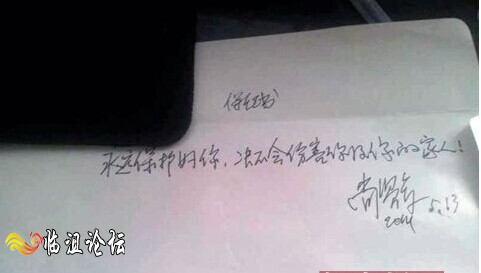 保证书
永远保护好你，决不会伤害你及你的家人！
2014 5.13
临沮论坛